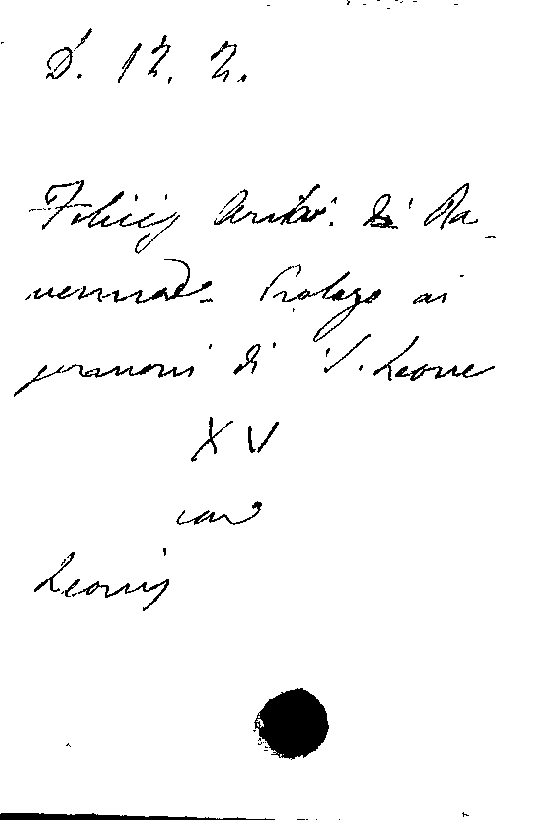 D. 12. 2.
Felicis Arciv. di Ra-
vennae- Prologo ai
sermoni di S. Leone
XV
car
Leonis